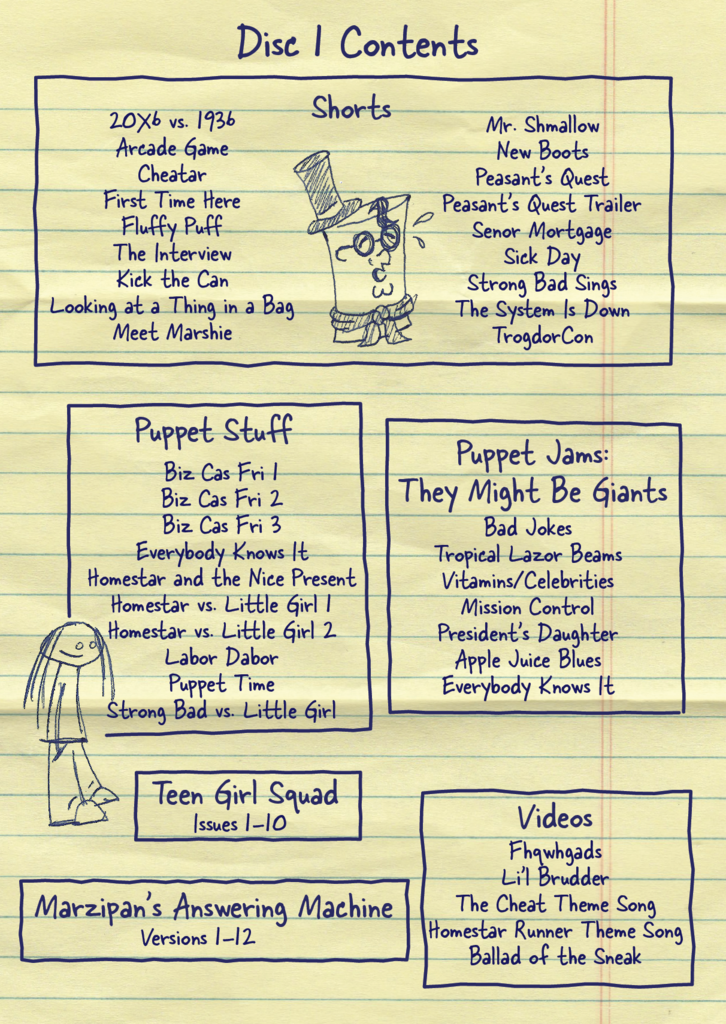 Disc 1 Contents
Shorts
20X6 vs. 1936
Arcade Game
Cheatar
First Time Here
Fluffy Puff
The Interview
Kick the Can
Looking at a Thing in a Bag
Meet Marshie
Mr. Shmallow
New Boots
Peasant's Quest
Peasant's Quest Trailer
Senor Mortgage
Sick Day
Strong Bad Sings
The System Is Down
TrogdorCon
Puppet Stuff
Biz Cas Fri 1
Biz Cas Fri 2
Biz Cas Fri 3
Everybody Knows It
Homestar and the Nice Present
Homestar vs. Little Girl 1
Homestar vs. Little Girl 2
Labor Dabor
Puppet Time
Strong Bad vs. Little Girl
Puppet Jams:
They Might Be Giants
Bad Jokes
Tropical Lazor Beams
Vitamins/Celebrities
Mission Control
President's Daughter
Apple Juice Blues
Everybody Knows It
Teen Girl Squad
Issues 1–10
Marzipan's Answering Machine
Versions 1–12
Videos
Fhqwhgads
Li'l Brudder
The Cheat Theme Song
Homestar Runner Theme Song
Ballad of the Sneak